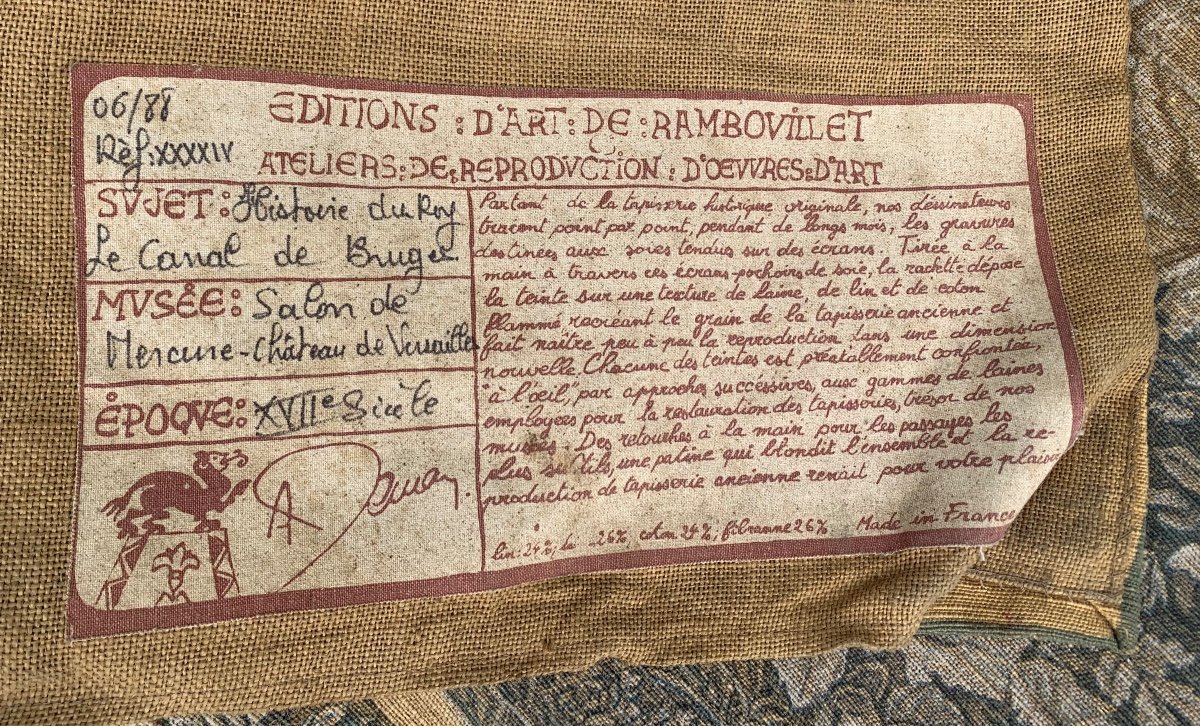 06/88
Réf: XXXXIV
EDITIONS : D'ART : DE : RAMBOVILLET
ATELIERS : DE : REPRODVCTION : D'ŒVVRES : D'ART
SVJET : Histoire du Roy
Le Canal de Bruges
MVSÉE : Salon de
Mercure - Château de Versailles
ÉPOQVE : XVIIe Siècle
Partant de la tapisserie historique originale, nos dessinateurs
tracent point par point, pendant de longs mois, les gravures
destinées aux soies tendus sur des écrans. Tirée à la
main à travers ces écrans pochoirs de soie, la raclette dépose
la teinte sur une texture de laine, de lin et de coton
flammé recréant le grain de la tapisserie ancienne et
fait naître peu à peu la reproduction dans une dimension
nouvelle. Chacune des teintes est préalablement confrontée,
"à l'œil", par approches successives, aux gammes de laines
employées pour la restauration des tapisseries, trésor de nos
musées. Des retouches à la main pour les passages les
plus subtils, une patine qui blondit l'ensemble et la re-
production de tapisserie ancienne renaît pour votre plaisir
lin: 24%, 26%, coton 24%, fibranne 26% Made in France